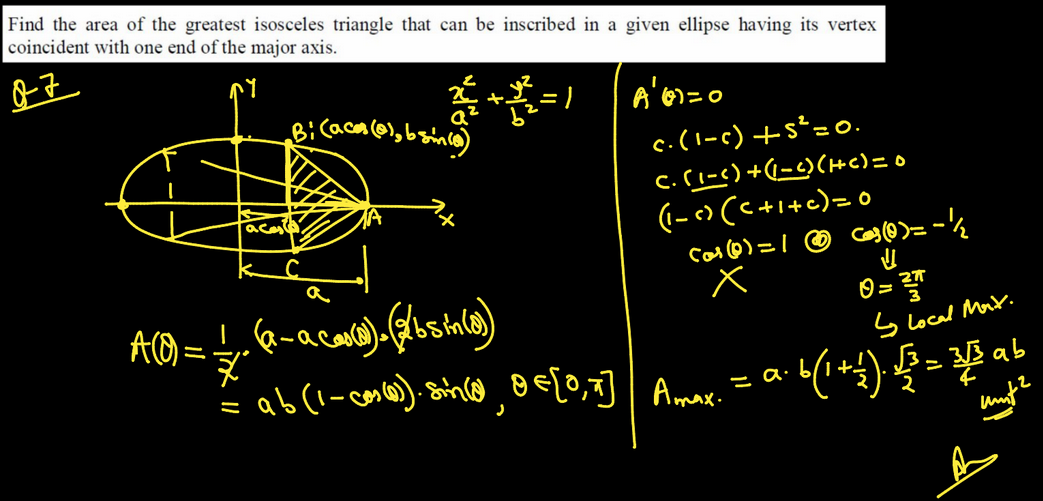 Find the area of the greatest isosceles triangle that can be inscribed in a given ellipse having its vertex
coincident with one end of the major axis.
Q-7
Y
x²/a² + y²/b² = 1
B: (a cos(θ), b sin(θ))
A
X
a cos(θ)
C
a
A(θ) = 1/2 · (a - a cos(θ)) · (2b sin(θ))
= ab (1 - cos(θ)) · sin(θ), θ ∈ [0, π]
A'(θ) = 0
c · (1-c) + s² = 0.
c · (1-c) + (1-c)(1+c) = 0
(1-c) (c+1+c) = 0
cos(θ) = 1 or cos(θ) = -1/2
X
⇓
θ = 2π/3
↳ Local Max.
A max. = a · b (1 + 1/2) · √3/2 = 3√3/4 ab
unit²